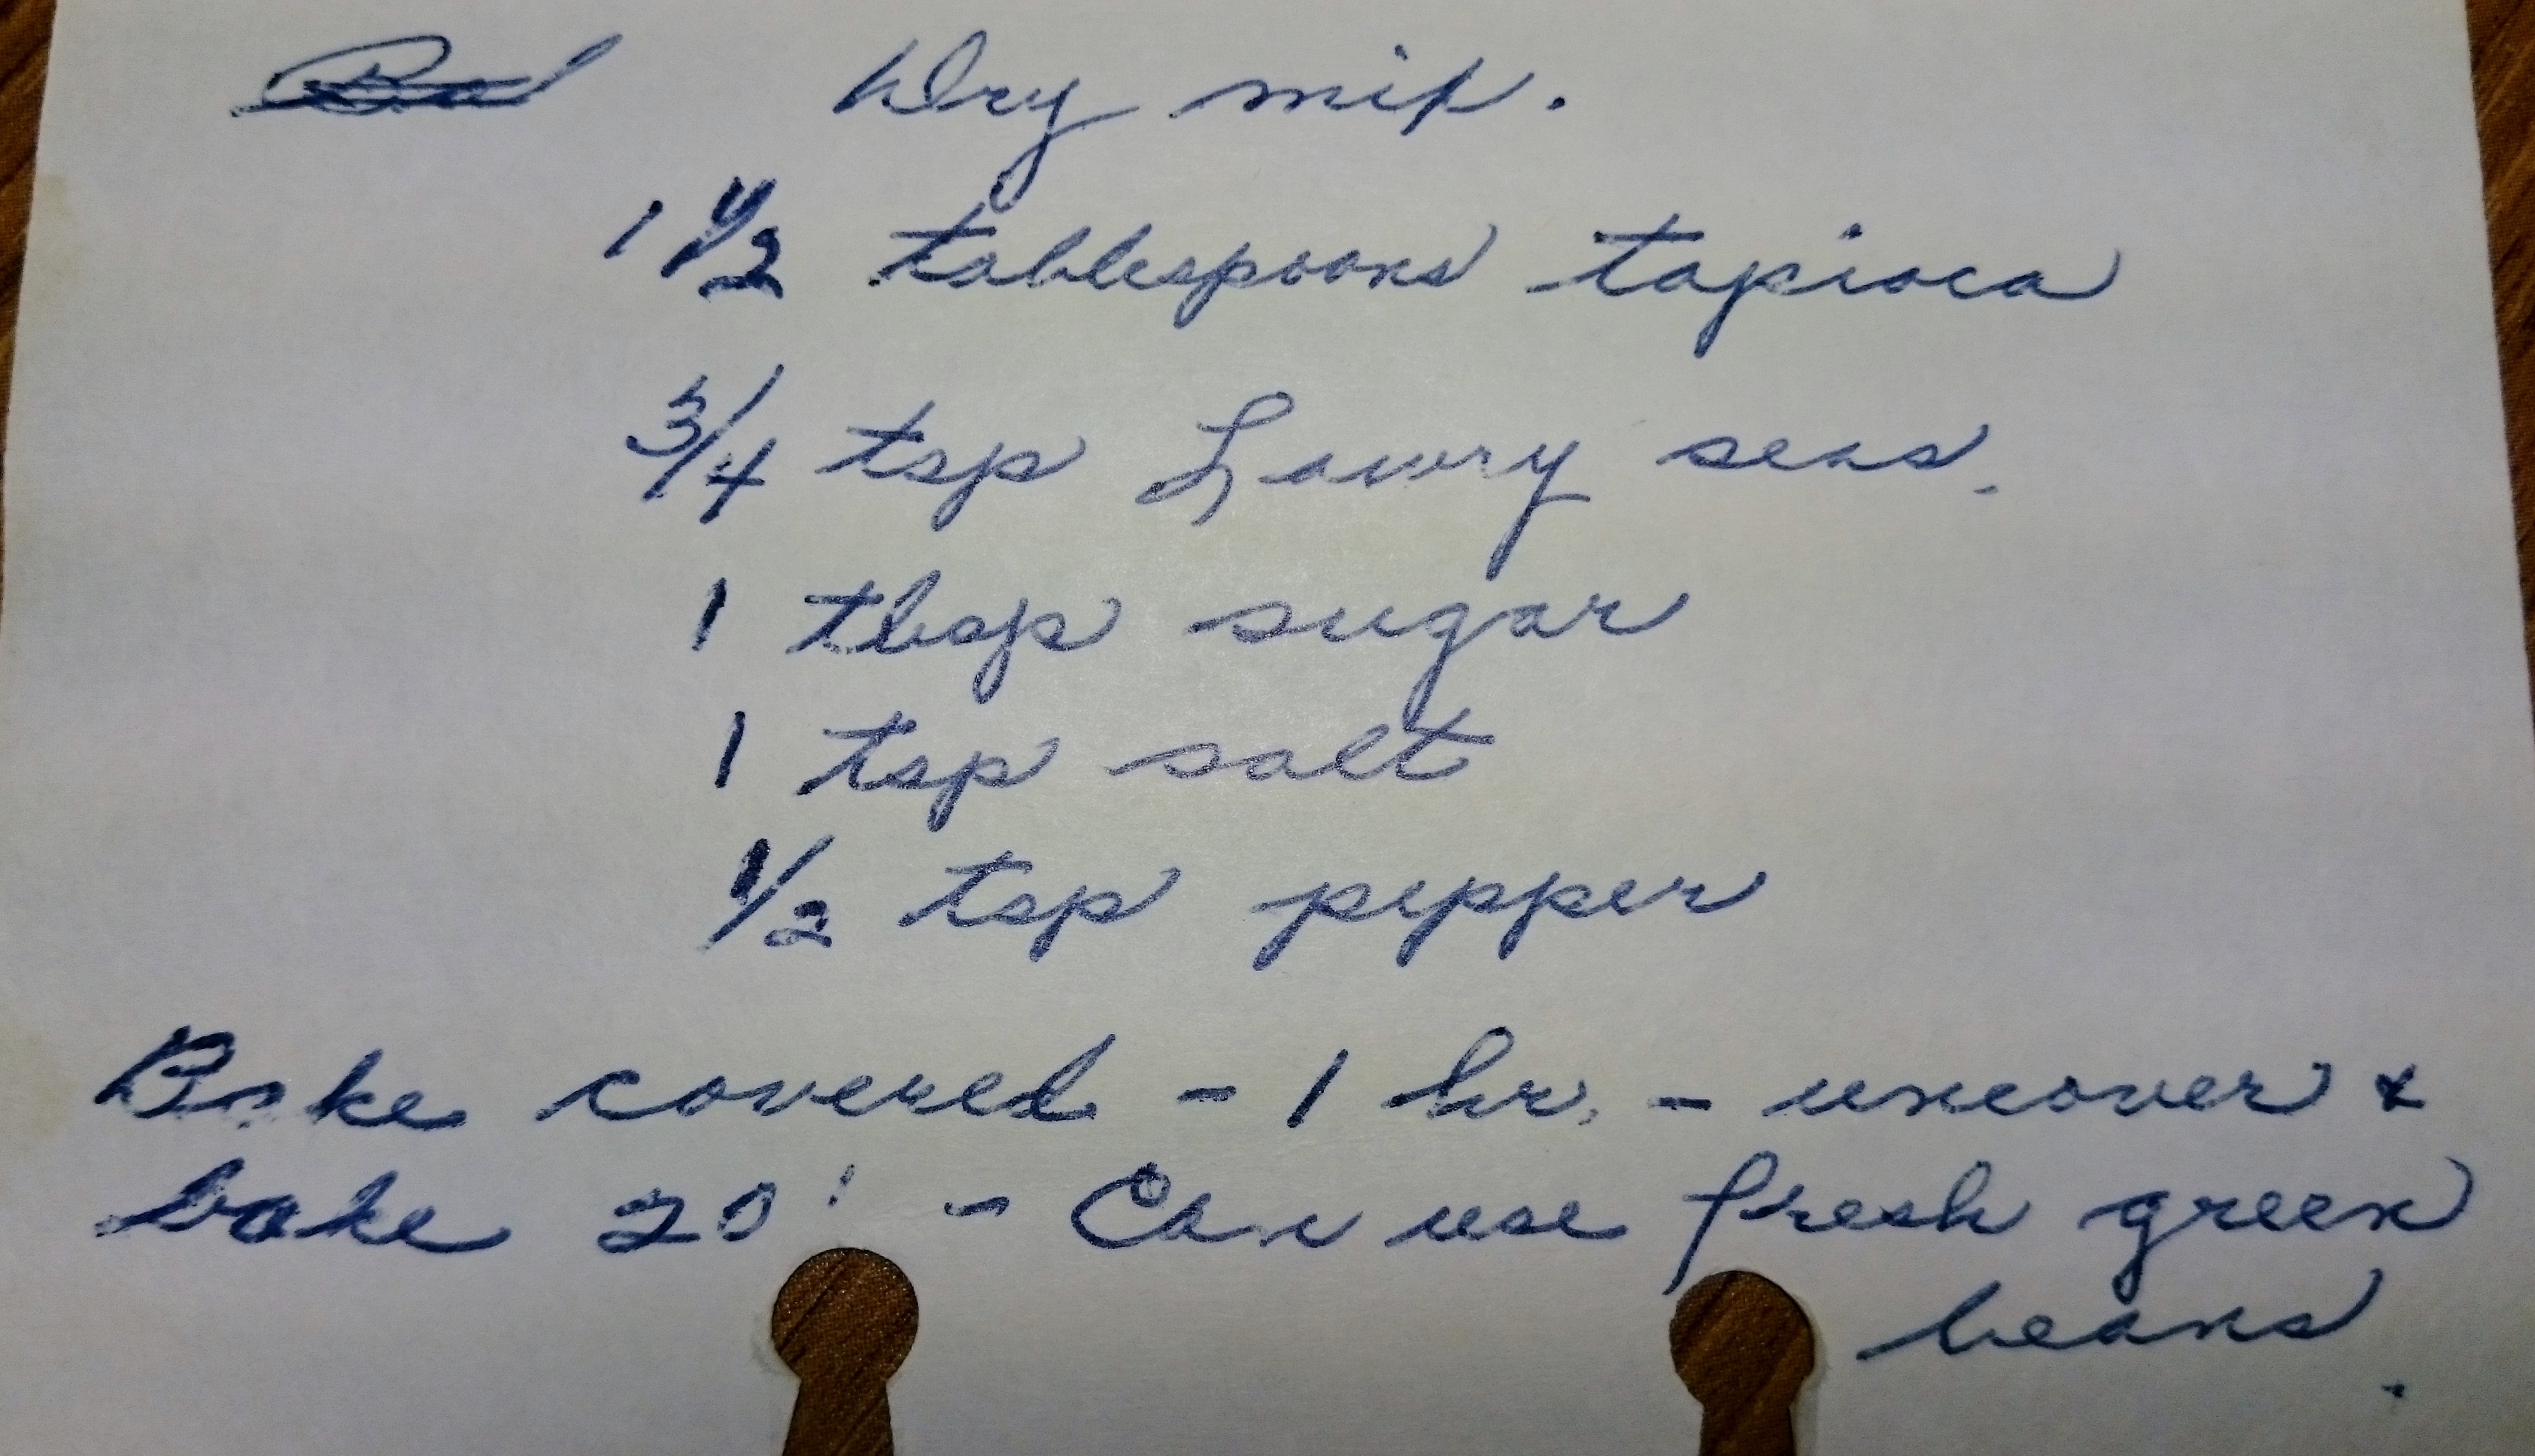 Dry mix.
1 1/2 tablespoons tapioca
3/4 tsp Lawry seas.
1 tbsp sugar
1 tsp salt
1/2 tsp pepper
Bake covered - 1 hr. - uncover &
bake 20' - Can use fresh green
beans.